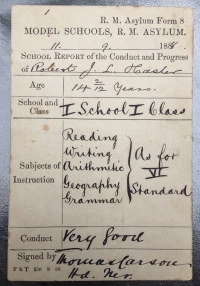 1
R. M. Asylum Form 8
MODEL SCHOOLS, R. M. ASYLUM.
11. 9. 188
SCHOOL REPORT of the Conduct and Progress
of Robert J. L.
Age 14 2/12 Years.
School and Class I School I Class
Subjects of Instruction
Reading
Writing
Arithmetic
Geography
Grammar
As for
VI
Standard
Conduct Very Good
Signed by Thomas Carson
Hd. Mr.
F & T